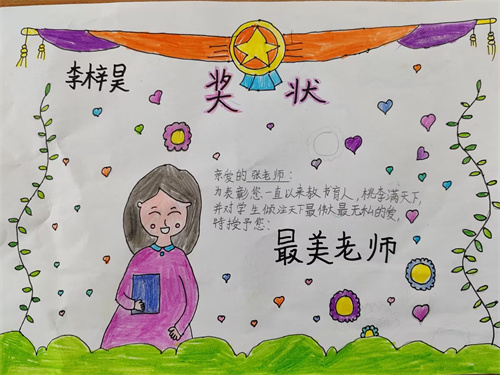 李梓昊
奖状
亲爱的张老师：
为表彰您一直以来教书育人，桃李满天下，
并对学生倾注天下最伟大最无私的爱，
特授予您：
最美老师